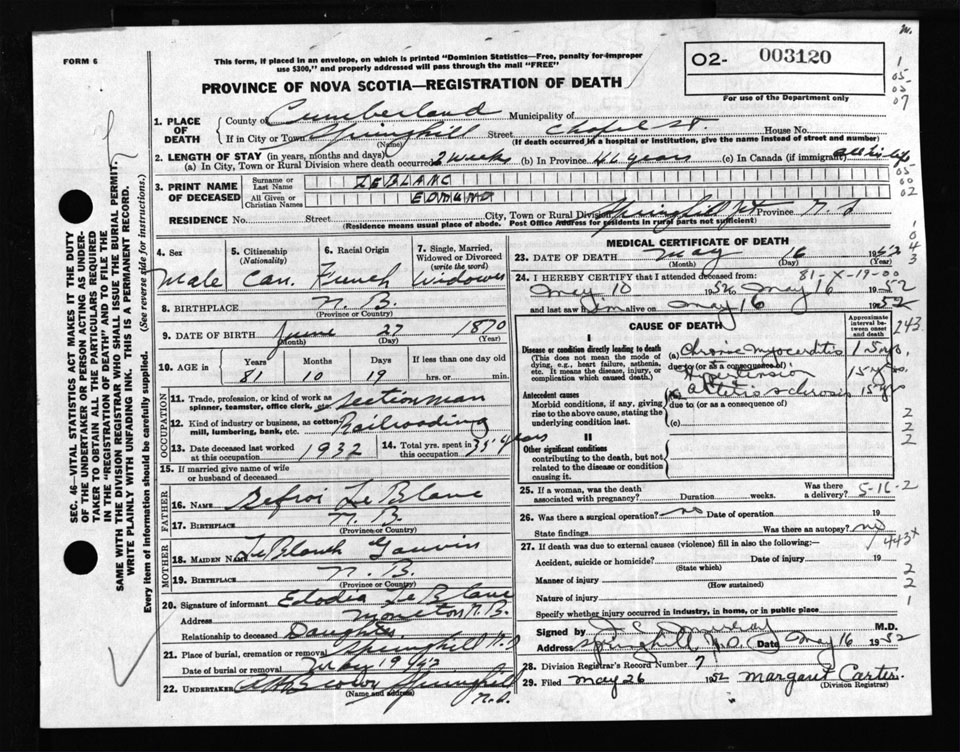 FORM 6
This form, if placed in an envelope, on which is printed "Dominion Statistics—Free, penalty for improper
use $300," and properly addressed will pass through the mail "FREE"
02- 003120
For use of the Department only
PROVINCE OF NOVA SCOTIA—REGISTRATION OF DEATH
1. PLACE OF DEATH
County of Cumberland Municipality of
If in City or Town Springhill Street Chapel St. House No.
(Name) (If death occurred in a hospital or institution, give the name instead of street and number)
2. LENGTH OF STAY (in years, months and days)
(a) In City, Town or Rural Division where death occurred 2 weeks (b) In Province 46 years (c) In Canada (if immigrant) all his life
3. PRINT NAME OF DECEASED
Surname or Last Name LEBLANC
All Given or Christian Names EDMUND
RESIDENCE No. Street City, Town or Rural Division Springhill Jct Province N.S
(Residence means usual place of abode. Post Office Address for residents in rural parts not sufficient)
4. Sex Male
5. Citizenship (Nationality) Can.
6. Racial Origin French
7. Single, Married, Widowed or Divorced (write the word) Widower
8. BIRTHPLACE N.B.
(Province or Country)
9. DATE OF BIRTH June 27 1870
(Month) (Day) (Year)
10. AGE in Years Months Days If less than one day old
81 10 19 hrs. or min.
OCCUPATION
11. Trade, profession, or kind of work as spinner, teamster, office clerk, etc. Sectionman
12. Kind of industry or business, as cotton mill, lumbering, bank, etc. Railroading
13. Date deceased last worked at this occupation 1932
14. Total yrs. spent in this occupation 35 years
15. If married give name of wife or husband of deceased
FATHER
16. NAME LeBlanc
17. BIRTHPLACE N.B.
(Province or Country)
MOTHER
18. MAIDEN NAME Gauvin
19. BIRTHPLACE N.B.
(Province or Country)
20. Signature of informant LeBlanc
Address Moncton N.B.
Relationship to deceased Daughter
21. Place of burial, cremation or removal Springhill N.S
Date of burial or removal May 19
22. UNDERTAKER Brown Springhill
N.S.
(Name and address)
MEDICAL CERTIFICATE OF DEATH
23. DATE OF DEATH May 16 1952
(Month) (Day) (Year)
81-X-19-00
24. I HEREBY CERTIFY that I attended deceased from:
May 10 1952 to May 16 1952
and last saw him alive on May 16 1952
CAUSE OF DEATH
Approximate interval between onset and death
I
Disease or condition directly leading to death
(This does not mean the mode of dying, e.g., heart failure, asthenia, etc. It means the disease, injury, or complication which caused death.)
(a) Chronic myocarditis 15 yrs.
due to (or as a consequence of)
Hypertension 15 yrs.
Antecedent causes
Morbid conditions, if any, giving rise to the above cause, stating the underlying condition last.
(b) 15 yrs
due to (or as a consequence of)
(c)
II
Other significant conditions
contributing to the death, but not related to the disease or condition causing it.
25. If a woman, was the death associated with pregnancy? Duration weeks. Was there a delivery?
5-16-2
26. Was there a surgical operation? no Date of operation 19
State findings Was there an autopsy? no
443+
27. If death was due to external causes (violence) fill in also the following:
Accident, suicide or homicide? Date of injury 19
(State which)
Manner of injury
(How sustained)
Nature of injury
Specify whether injury occurred in industry, in home, or in public place
Signed by Murray M.D.
Address Springhill N.S. Date May 16 1952
28. Division Registrar's Record Number 7
29. Filed May 26 1952 Margaret Carter
(Division Registrar)
SEC. 46—VITAL STATISTICS ACT MAKES IT THE DUTY
OF THE UNDERTAKER OR PERSON ACTING AS UNDER-
TAKER TO OBTAIN ALL THE PARTICULARS REQUIRED
IN THE "REGISTRATION OF DEATH" AND TO FILE THE
SAME WITH THE DIVISION REGISTRAR WHO SHALL ISSUE THE BURIAL PERMIT.
WRITE PLAINLY WITH UNFADING INK. THIS IS A PERMANENT RECORD.
Every item of Information should be carefully supplied. (See reverse side for instructions.)